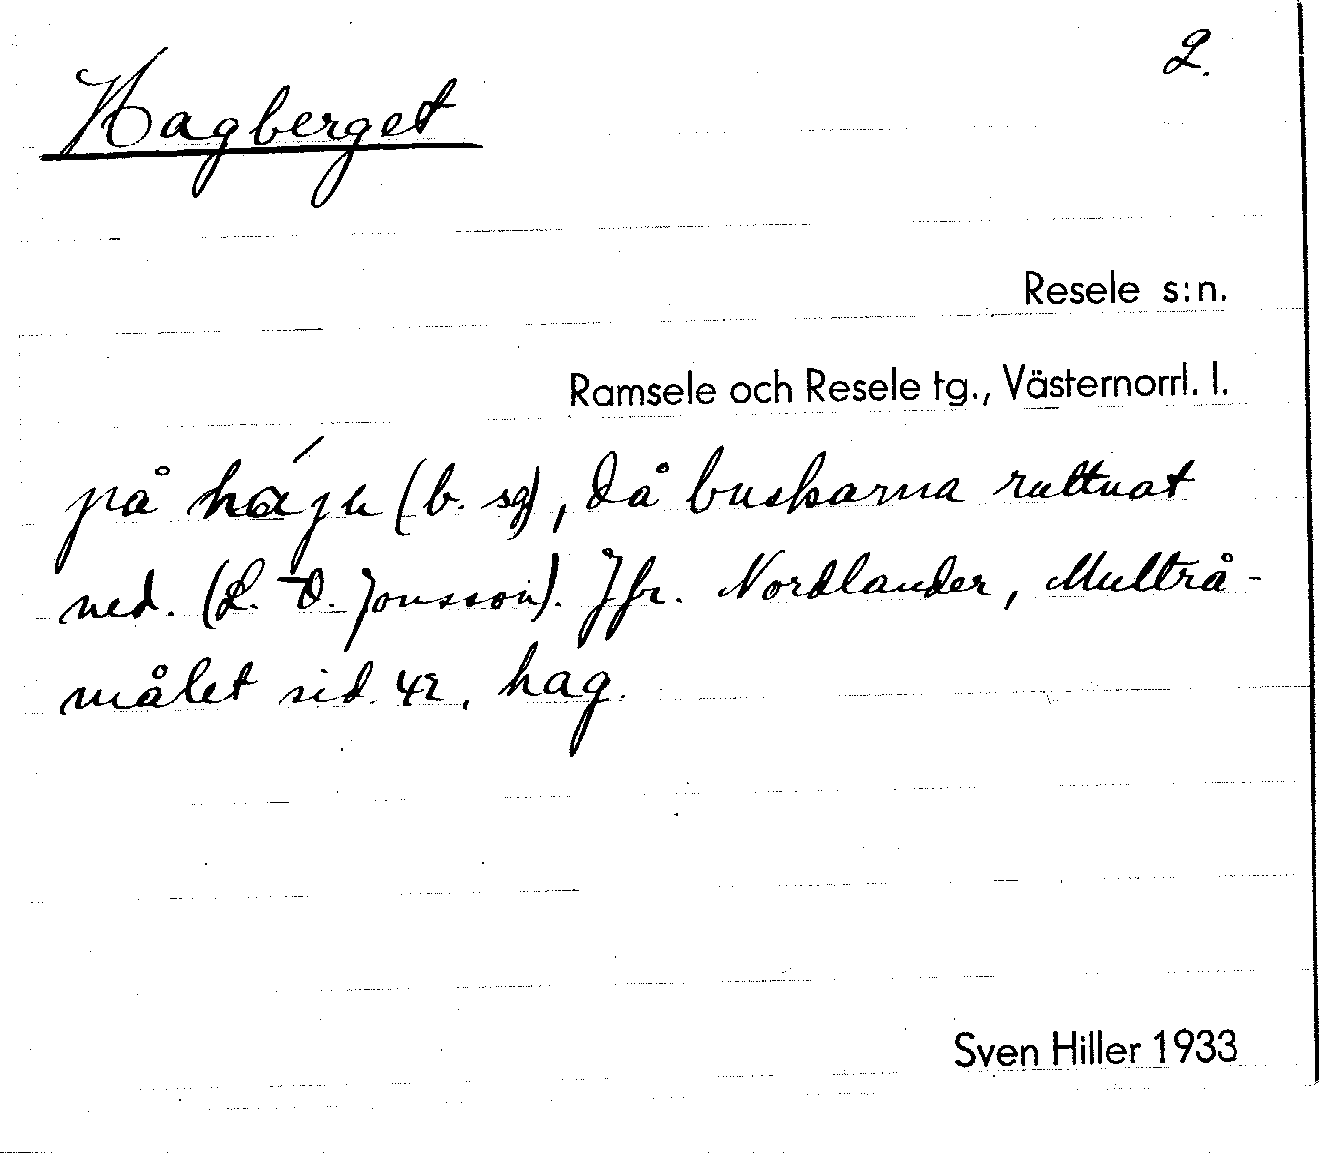 2.
Hagberget
Resele s:n.
Ramsele och Resele tg., Västernorrl. l.
på (b. sg), då buskarna ruttnat
ned. (L. O. Jonsson). Jfr. Nordlander, Multrå-
målet sid. 42, hag.
Sven Hiller 1933